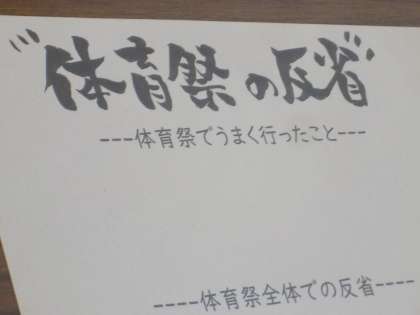 ”体育祭の反省”
---体育祭でうまく行ったこと---
----体育祭全体での反省----